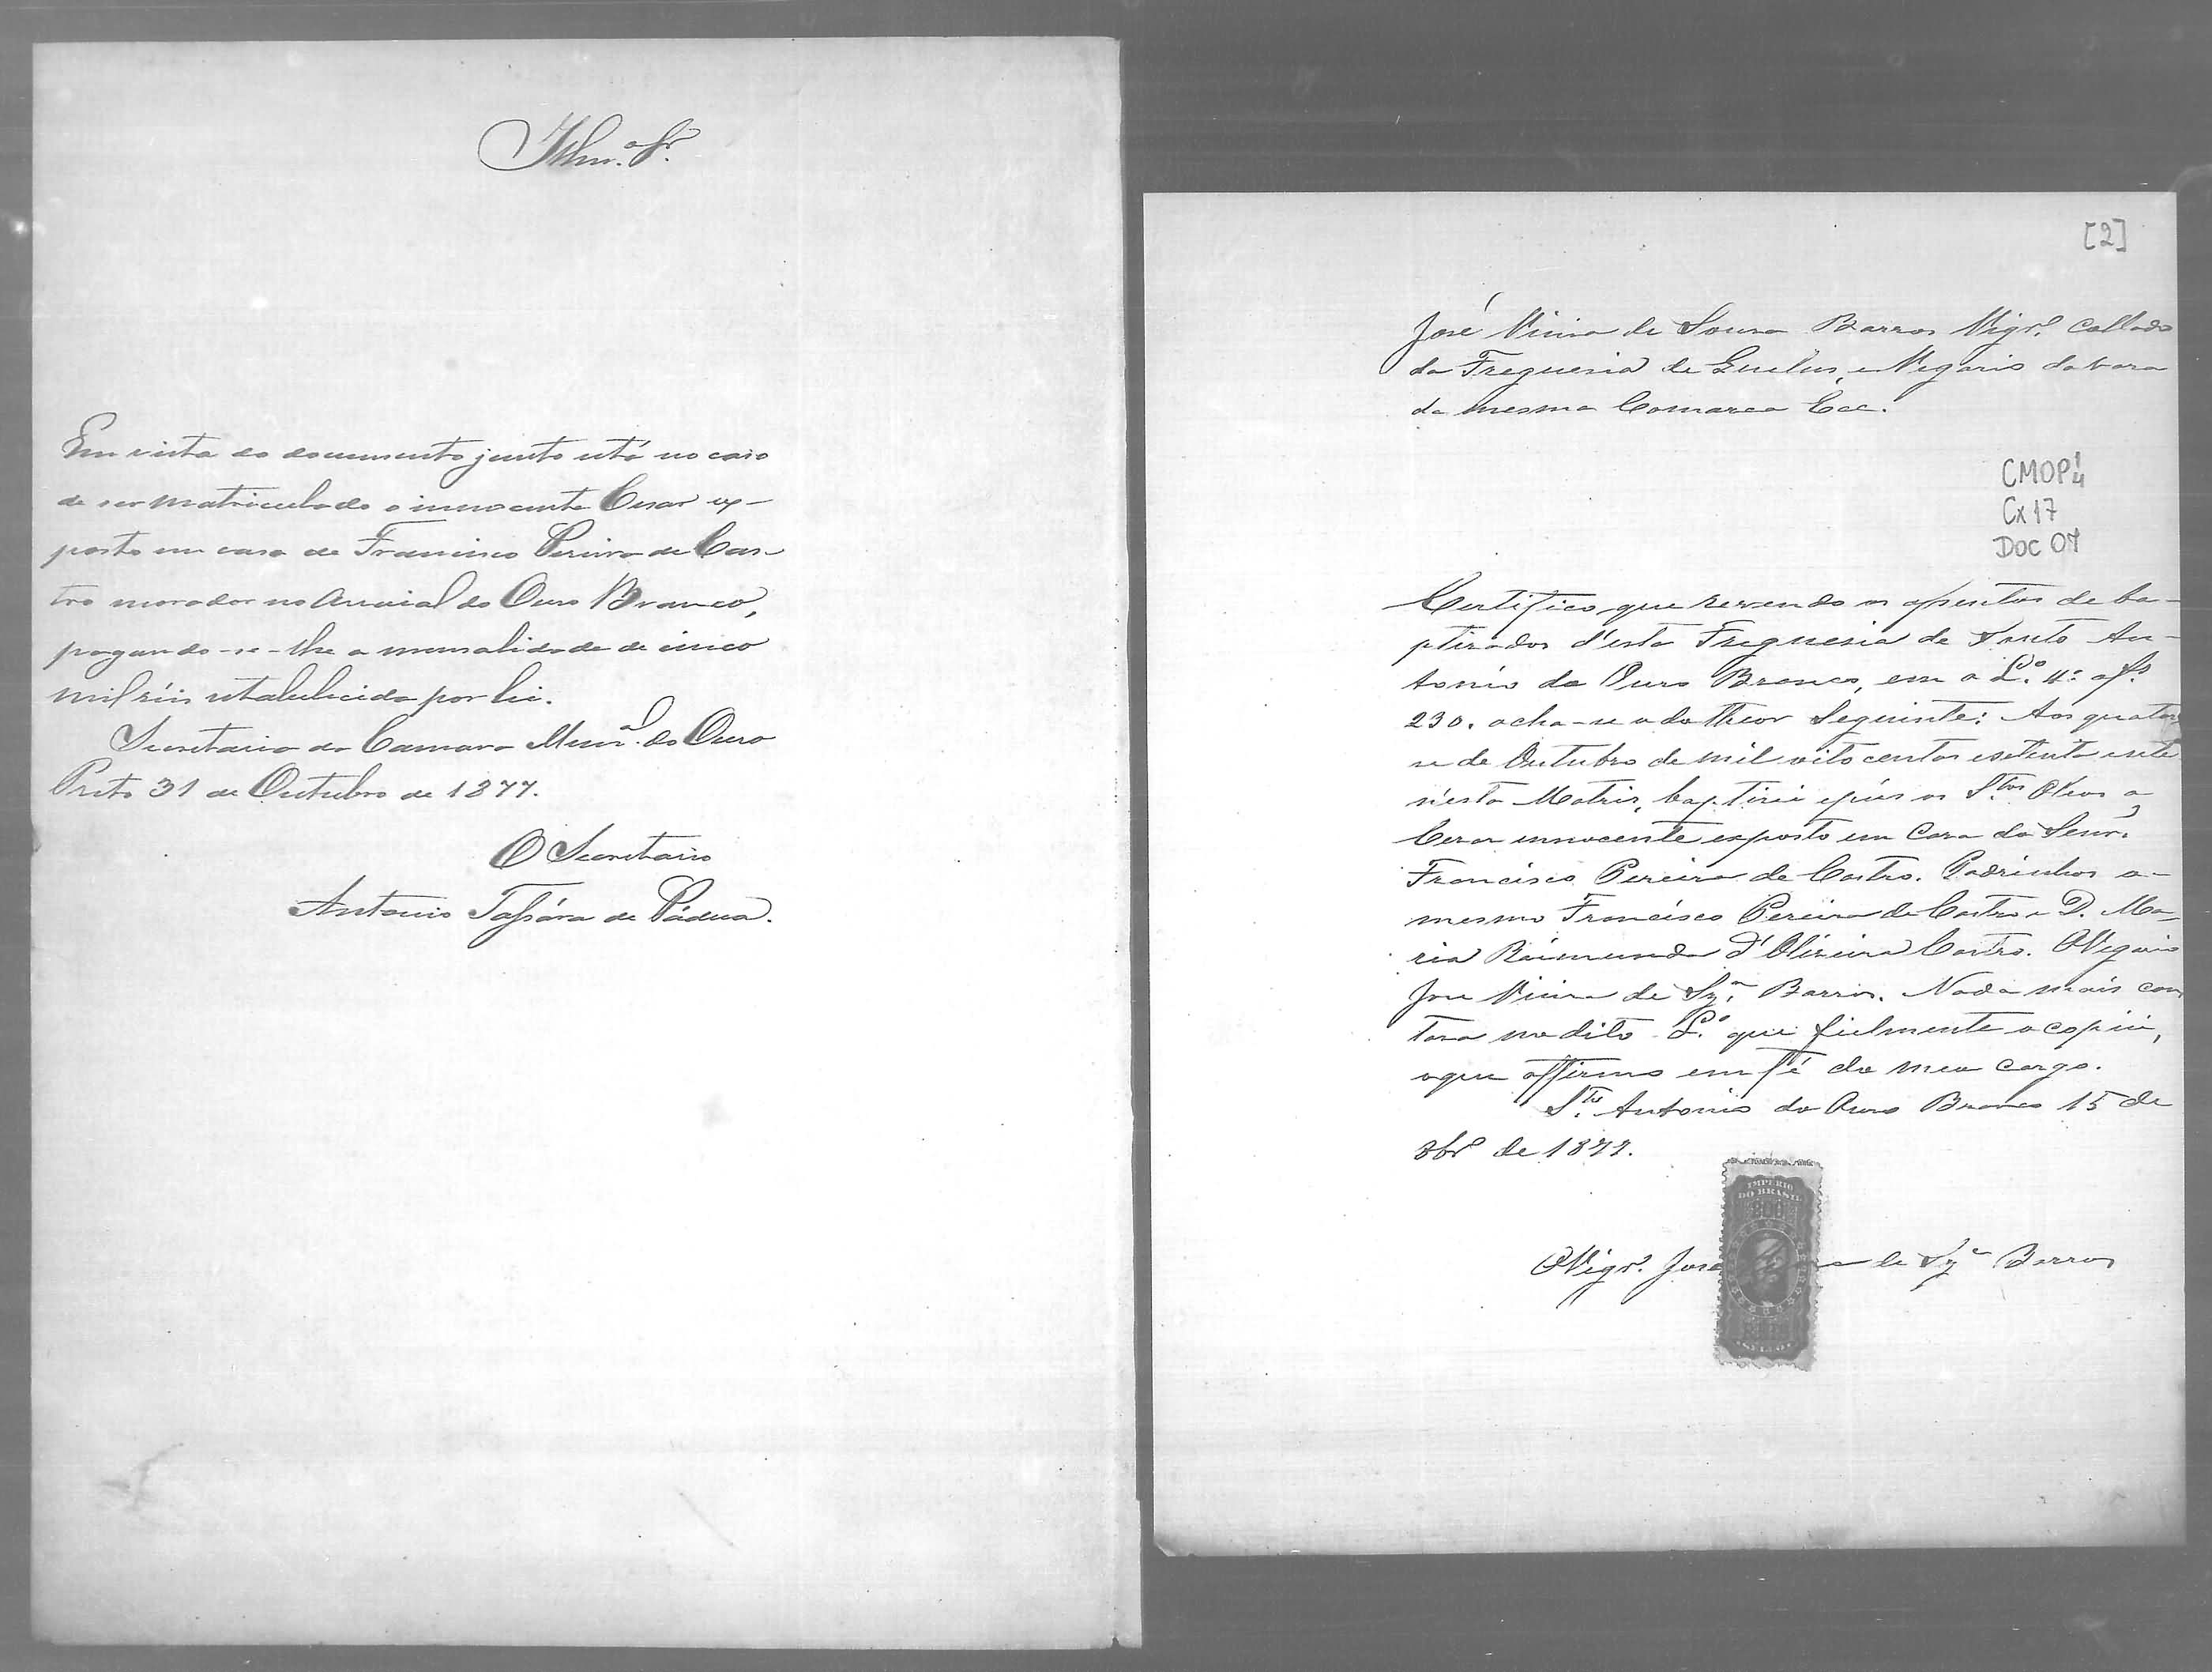 Illm.º Sr.
Em vista do documento junto está no caso
de ser matriculado o innocente Cesar ex-
posto em casa de Francisco Pereira de Cas-
tro morador no Arraial do Ouro Branco,
pagando-se-lhe a mensalidade de cinco
mil réis estabelecida por lei.
Secretaria da Camara Mun.al do Ouro
Preto 31 de Outubro de 1877.
O Secretario
Antonio Tassára de Pádua.
[2]
José Vieira de Souza Barros Vigr.º Collado
da Freguesia de e Vigario da vara
da mesma Comarca &c.
CMOP 1/4
Cx 17
DOC 07
Certifico que revendo os assentos de ba-
ptizados d'esta Freguesia de Santo An-
tonio do Ouro Branco, em o L.º 4.º a fs.
230. acha-se o do theor Seguinte: Aos quator-
ze de Outubro de mil oitocentos e setenta e sete
n'esta Matris, baptizei e pús os S.tos Oleos a
Cezar innocente exposto em Casa do Senr.
Francisco Pereira de Castro. Padrinhos o-
mesmo Francisco Pereira de Castro e D. Ma-
ria Raimunda d'Oliveira Castro. O Vigario
José Vieira de Sz.ª Barros. Nada mais con
tava no dito L.º que fielmente o copiei,
o que affirmo em fé do meu cargo.
S.to Antonio do Ouro Branco 15 de
8br.º de 1877.
IMPERIO
DO BRASIL
O Vigr.º José de Sz.ª Barros